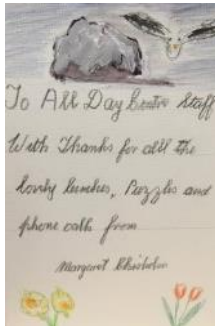 To All Day Centre Staff
With Thanks for all the
lovely lunches, Puzzles and
phone calls from
Margaret Chisholm